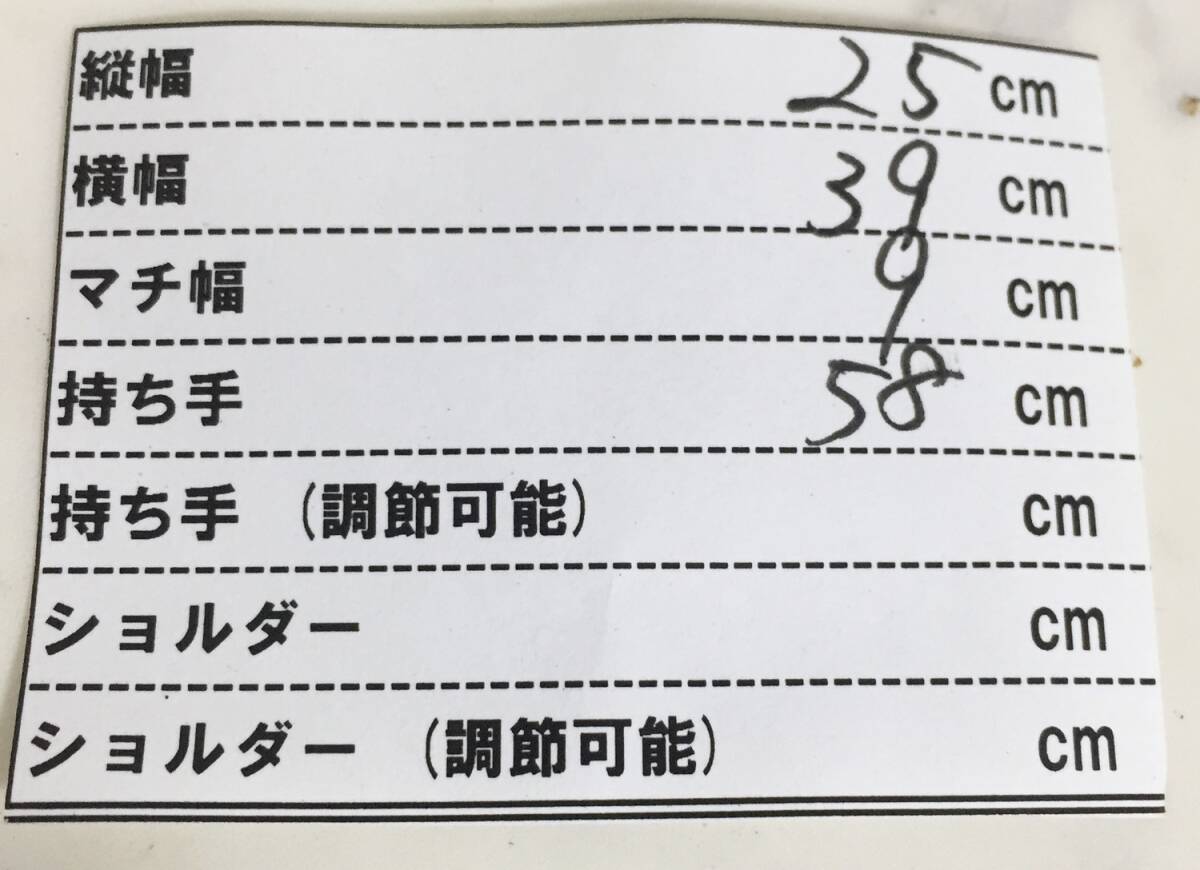 縦幅 25 cm
横幅 39 cm
マチ幅 9 cm
持ち手 58 cm
持ち手 (調節可能) cm
ショルダー cm
ショルダー (調節可能) cm